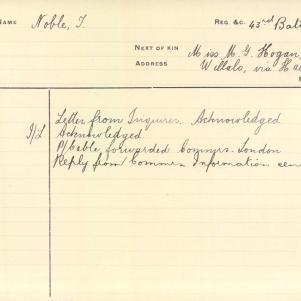 NAME Noble, T. REG. &C. 43rd Batt
NEXT OF KIN Miss M. G. Hogan,
ADDRESS Willalo, via Ha
Letter from Inquirer. Acknowledged
I/L Acknowledged
P/Cable forwarded Commrs. London
Reply from Commrs Information